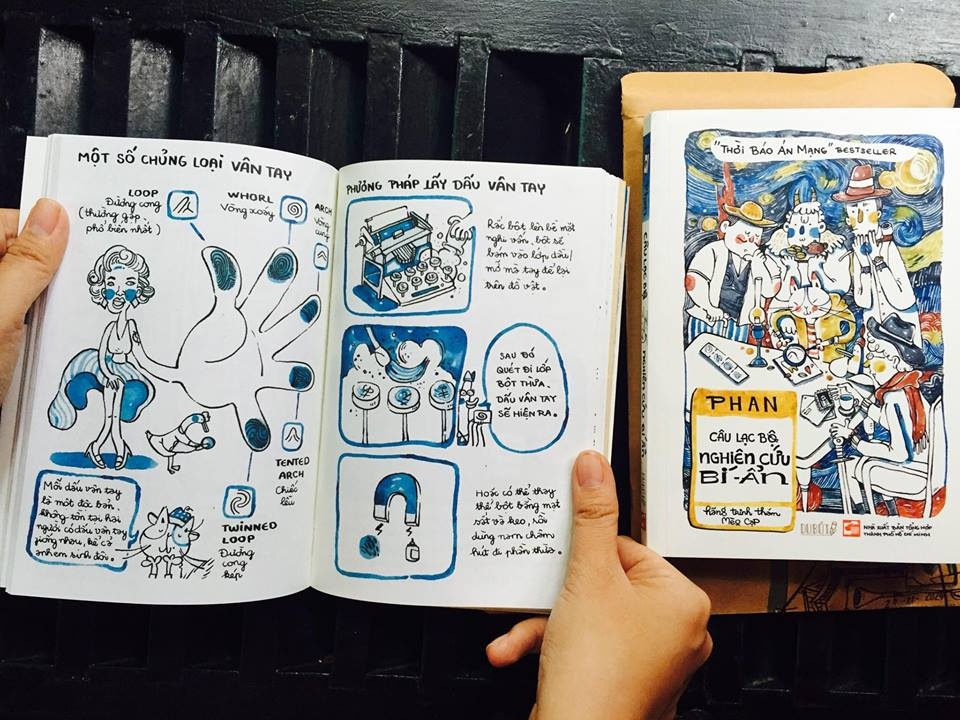 MỘT SỐ CHỦNG LOẠI VÂN TAY
LOOP
Đường cong
(thường gặp,
phổ biến nhất)
WHORL
Vòng xoáy
ARCH
Vòng
cung
TENTED
ARCH
Chiếc
lều
TWINNED
LOOP
Đường
cong
kép
Mỗi dấu vân tay
là một độc bản.
Không tồn tại hai
người có dấu vân tay
giống nhau, kể cả
anh em sinh đôi.
PHƯƠNG PHÁP LẤY DẤU VÂN TAY
Rắc bột lên bề mặt
nghi vấn, bột sẽ
bám vào lớp dầu/
mỡ mà tay để lại
trên đồ vật.
SAU ĐÓ
QUÉT ĐI LỚP
BỘT THỪA.
DẤU VÂN TAY
SẼ HIỆN RA.
Hoặc có thể thay
thế bột bằng mạt
sắt và keo, rồi
dùng nam châm
hút đi phần thừa.
"THỜI BÁO ÁN MẠNG" BESTSELLER
PHAN
CÂU LẠC BỘ
NGHIÊN CỨU
BÍ-ẨN
hãng trinh thám
Mèo Cọp
NHÀ XUẤT BẢN TỔNG HỢP
THÀNH PHỐ HỒ CHÍ MINH